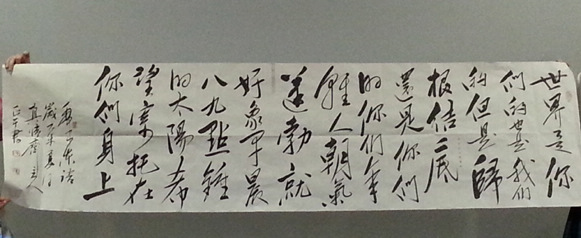 世界是你
們的也是我們
的但是歸
根结底
還是你們
的你们年
輕人朝氣
蓬勃就
好象早晨
八九點鐘
的太陽希
望寄托在
你們身上